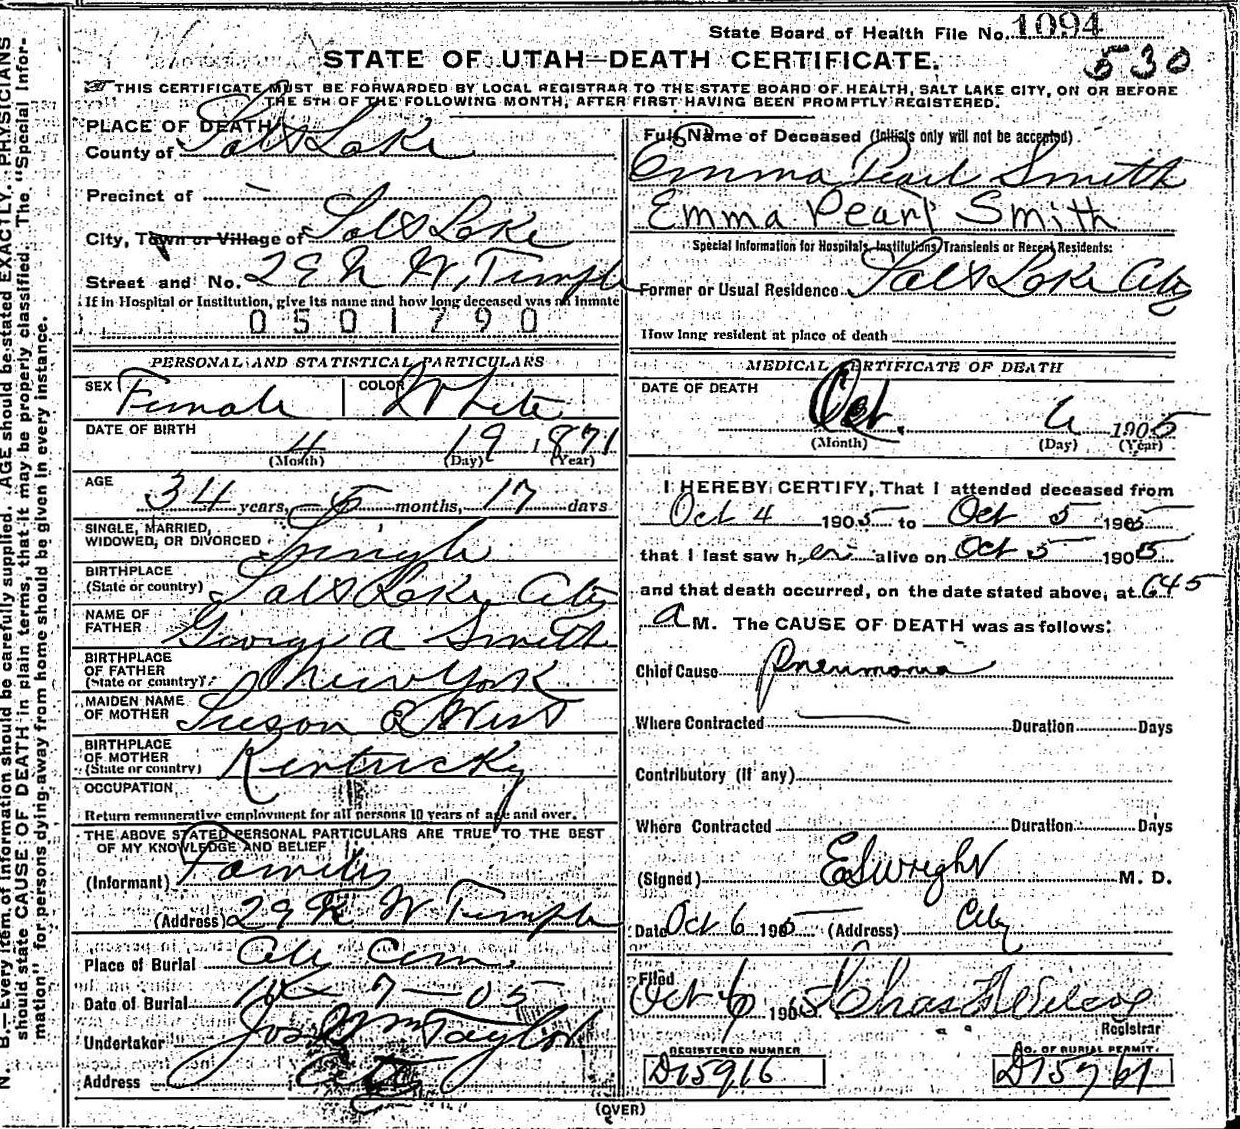 State Board of Health File No. 1094
530
STATE OF UTAH—DEATH CERTIFICATE.
THIS CERTIFICATE MUST BE FORWARDED BY LOCAL REGISTRAR TO THE STATE BOARD OF HEALTH, SALT LAKE CITY, ON OR BEFORE
THE 5TH OF THE FOLLOWING MONTH, AFTER FIRST HAVING BEEN PROMPTLY REGISTERED.
N. B.—Every item of information should be carefully supplied. AGE should be stated EXACTLY. PHYSICIANS
should state CAUSE OF DEATH in plain terms, that it may be properly classified. The "Special Infor-
mation" for persons dying away from home should be given in every instance.
PLACE OF DEATH
County of Salt Lake
Precinct of
City, Town or Village of Salt Lake
Street and No. 29 N W. Temple
If in Hospital or Institution, give its name and how long deceased was an inmate
0501790
PERSONAL AND STATISTICAL PARTICULARS
SEX Female COLOR White
DATE OF BIRTH
4 19 1871
(Month) (Day) (Year)
AGE
34 years, 5 months, 17 days
SINGLE, MARRIED,
WIDOWED, OR DIVORCED Single
BIRTHPLACE
(State or country) Salt Lake City
NAME OF
FATHER George A Smith
BIRTHPLACE
OF FATHER
(State or country) New York
MAIDEN NAME
OF MOTHER Suson E West
BIRTHPLACE
OF MOTHER
(State or country) Kentucky
OCCUPATION
Return remunerative employment for all persons 10 years of age and over.
THE ABOVE STATED PERSONAL PARTICULARS ARE TRUE TO THE BEST
OF MY KNOWLEDGE AND BELIEF
(Informant) Family
(Address) 29 N W Temple
Place of Burial City Cem.
Date of Burial 10-7-05
Undertaker Jos Wm Taylor
Address City
Full Name of Deceased (Initials only will not be accepted)
Emma Pearl Smith
Emma Pearl Smith
Special Information for Hospitals, Institutions, Transients or Recent Residents:
Former or Usual Residence Salt Lake City
How long resident at place of death
MEDICAL CERTIFICATE OF DEATH
DATE OF DEATH
Oct. 6 1905
(Month) (Day) (Year)
I HEREBY CERTIFY, That I attended deceased from
Oct 4 1905 to Oct 5 1905
that I last saw her alive on Oct 5 1905
and that death occurred, on the date stated above, at 645
A M. The CAUSE OF DEATH was as follows:
Chief Cause Pneumonia
Where Contracted Duration Days
Contributory (if any)
Where Contracted Duration Days
(Signed) E S Wright M. D.
Date Oct 6 1905 (Address) City
Filed
Oct 6 1905 Chas F Wilcox
Registrar
REGISTERED NUMBER
D15916
NO. OF BURIAL PERMIT.
(OVER)